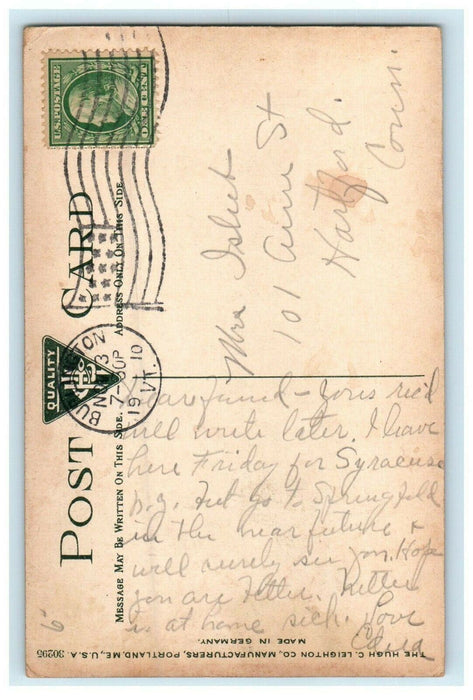 U.S. POSTAGE
ONE CENT
POST CARD
QUALITY
MESSAGE MAY BE WRITTEN ON THIS SIDE.
ADDRESS ONLY ON THIS SIDE
BURLINGTON
7 30P
19 10
VT.
Mrs
101 Ann St
Hartford.
Conn.
Dear friend - yours rec'd
will write later. I leave
here Friday for Syracuse
N.Y. but go to Springfield
in the near future &
will surely see you. Hope
you are better.
is at home sick. Love
THE HUGH C. LEIGHTON CO., MANUFACTURERS, PORTLAND, ME., U.S.A. 30295
MADE IN GERMANY.